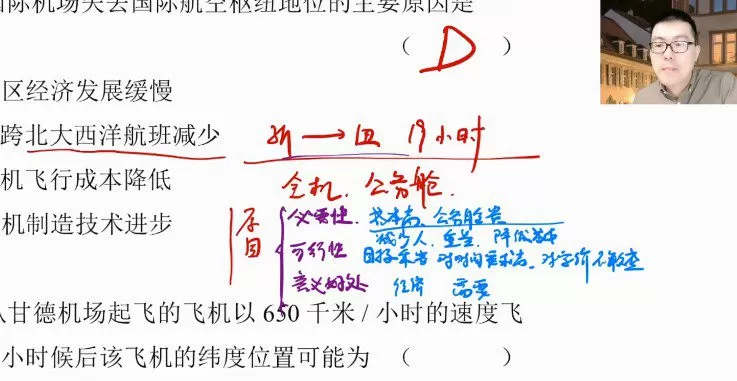 国际机场失去国际航空枢纽地位的主要原因是
（ D ）
区经济发展缓慢
跨北大西洋航班减少
新 → 纽 19小时
机飞行成本降低
全机. 公务舱.
机制造技术进步
原因
必要性. 成本高, 公务舱贵
减少人. 重量. 降低成本
可行性 目标乘客 对时间要求高. 对字价不敏查
意义好处 经济 需要
从甘德机场起飞的飞机以 650 千米 / 小时的速度飞
小时候后该飞机的纬度位置可能为 （ ）